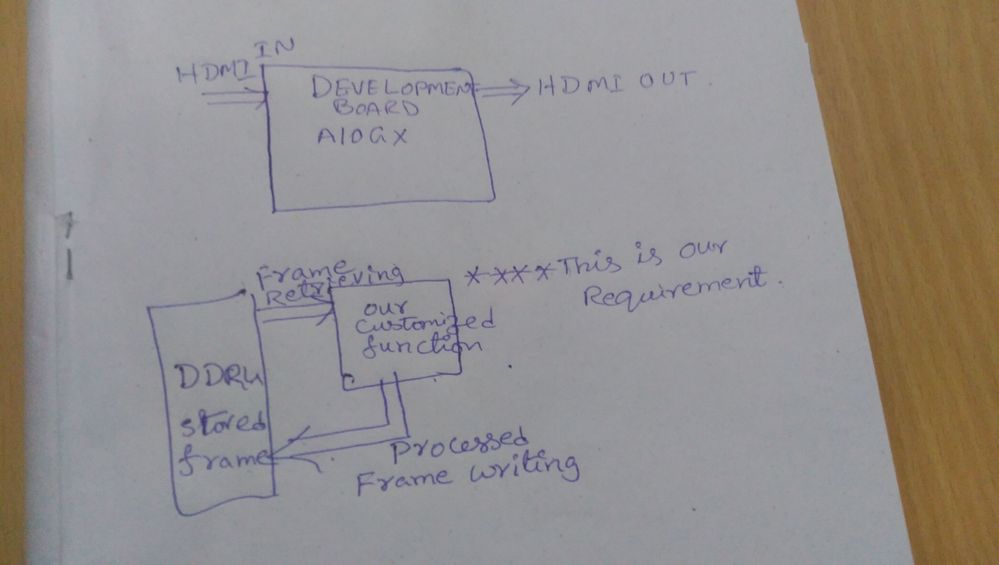 HDMI IN
DEVELOPMENT
BOARD
A10GX
HDMI OUT.
Frame
Retrieving
our
customized
function
****This is our
Requirement.
DDR4
stored
frame
Processed
Frame writing